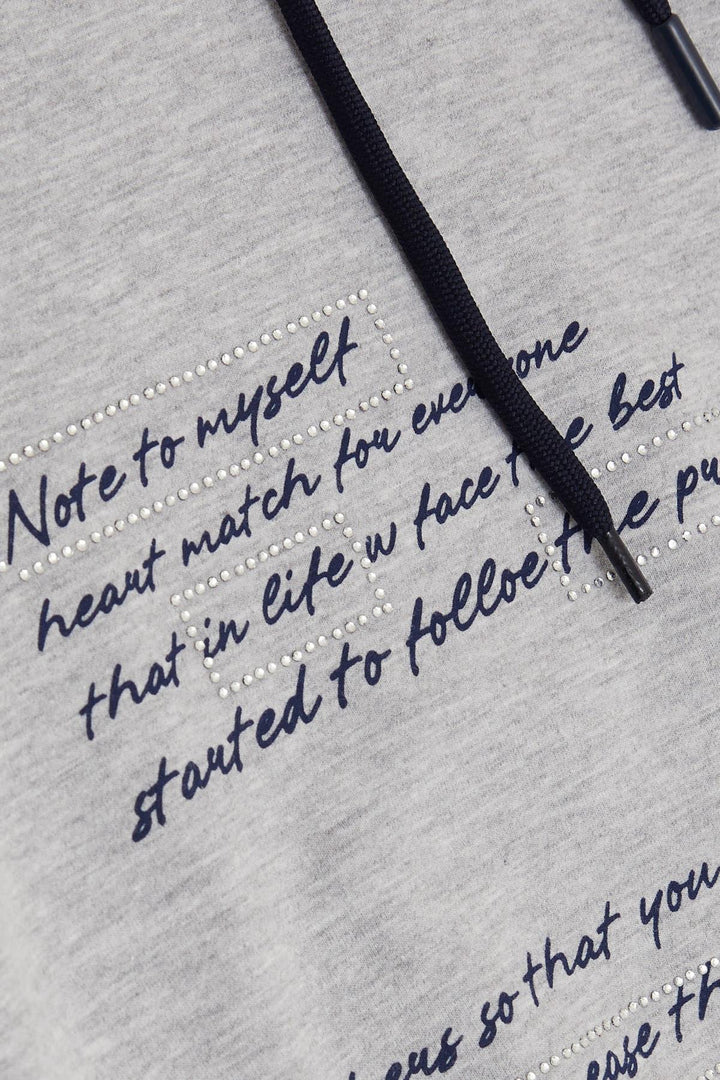 Note to myself
heart match for everyone
that in life w face the best
started to folloe the pu
so that you
ease th